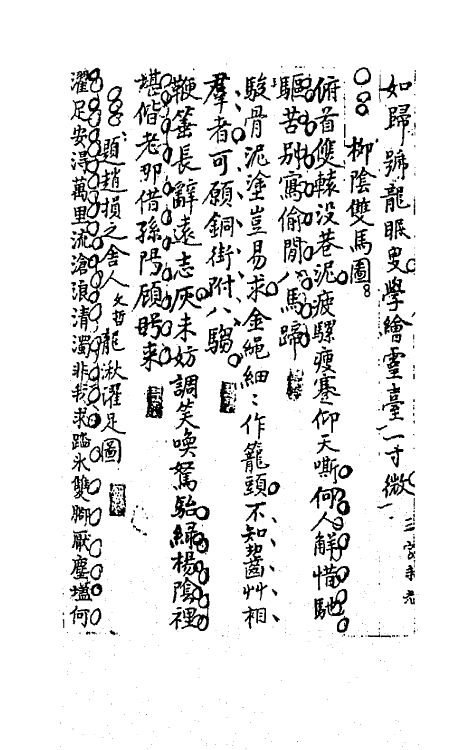 如歸號龍眠叟學繪靈臺一寸微
柳陰雙馬圖
俯首雙轅没巷泥疲騾瘦蹇仰天嘶何人解惜馳
驅苦别寫偷閒八馬蹄
駿骨泥塗豈易求金繩細〻作籠頭不知齧艸相
羣者可願銅街附八騶
鞭箠長辭遠志灰未妨調笑喚駑駘綠楊陰裡
堪偕老那借孫陽顧眄來
題趙損之舍人文哲龍湫濯足圖
濯足安得萬里流滄浪清濁非我求踏氷雙脚厭塵壒何